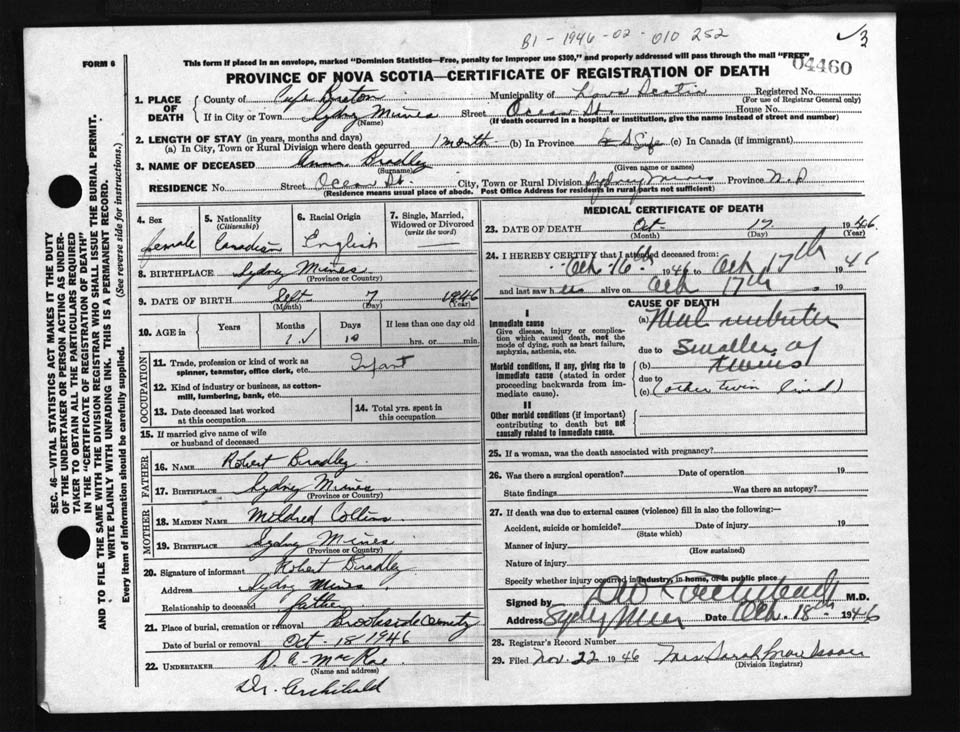 B1 - 1946 - 02 - 010 252
3
FORM 6
This form if placed in an envelope, marked "Dominion Statistics—Free, penalty for improper use $300," and properly addressed will pass through the mail "FREE"
04460
PROVINCE OF NOVA SCOTIA—CERTIFICATE OF REGISTRATION OF DEATH
1. PLACE OF DEATH
County of Cape Breton Municipality of Nova Scotia Registered No.
(For use of Registrar General only)
If in City or Town Sydney Mines Street Ocean St. House No.
(Name) (If death occurred in a hospital or institution, give the name instead of street and number)
2. LENGTH OF STAY (in years, months and days)
(a) In City, Town or Rural Division where death occurred 1 month (b) In Province Life (c) In Canada (if immigrant)
3. NAME OF DECEASED Anna Bradley
(Surname) (Given name or names)
RESIDENCE No. Street Ocean St. City, Town or Rural Division Sydney Mines Province N.S
(Residence means usual place of abode. Post Office Address for residents in rural parts not sufficient)
4. Sex
female
5. Nationality (Citizenship)
Canadian
6. Racial Origin
English
7. Single, Married, Widowed or Divorced (write the word)
8. BIRTHPLACE Sydney Mines
(Province or Country)
9. DATE OF BIRTH Sept 7 1946
(Month) (Day) (Year)
10. AGE in Years Months Days If less than one day old
1 10 hrs. or min.
OCCUPATION
11. Trade, profession or kind of work as spinner, teamster, office clerk, etc. Infant
12. Kind of industry or business, as cotton-mill, lumbering, bank, etc.
13. Date deceased last worked at this occupation
14. Total yrs. spent in this occupation
15. If married give name of wife or husband of deceased
FATHER
16. NAME Robert Bradley
17. BIRTHPLACE Sydney Mines
(Province or Country)
MOTHER
18. MAIDEN NAME Mildred Collins
19. BIRTHPLACE Sydney Mines
(Province or Country)
20. Signature of informant Robert Bradley
Address Sydney Mines
Relationship to deceased father
21. Place of burial, cremation or removal Brookside Cemetry
Date of burial or removal Oct - 18 / 1946
22. UNDERTAKER D. A. MacRae
(Name and address)
Dr. Archibald
MEDICAL CERTIFICATE OF DEATH
23. DATE OF DEATH Oct 17 1946
(Month) (Day) (Year)
24. I HEREBY CERTIFY that I attended deceased from:
Oct 16th 1946 to Oct 17th 19
and last saw her alive on Oct 17th 19
CAUSE OF DEATH
I
Immediate cause
Give disease, injury or complication which caused death, not the mode of dying, such as heart failure, asphyxia, asthenia, etc.
Morbid conditions, if any, giving rise to immediate cause (stated in order proceeding backwards from immediate cause).
II
Other morbid conditions (if important) contributing to death but not causally related to immediate cause.
(a)
due to
smaller of
(b) twins
due to
(c) (other twin lived)
25. If a woman, was the death associated with pregnancy?
26. Was there a surgical operation? Date of operation 19
State findings Was there an autopsy?
27. If death was due to external causes (violence) fill in also the following:—
Accident, suicide or homicide? Date of injury 19
(State which)
Manner of injury
(How sustained)
Nature of injury
Specify whether injury occurred in industry, in home, or in public place
Signed by M.D.
Address Sydney Mines Date Oct. 18th 1946
28. Registrar's Record Number
29. Filed Nov. 22 1946 Mrs Sarah
(Division Registrar)
SEC. 46—VITAL STATISTICS ACT MAKES IT THE DUTY
OF THE UNDERTAKER OR PERSON ACTING AS UNDER-
TAKER TO OBTAIN ALL THE PARTICULARS REQUIRED
IN THE "CERTIFICATE OF REGISTRATION OF DEATH"
AND TO FILE THE SAME WITH THE DIVISION REGISTRAR WHO SHALL ISSUE THE BURIAL PERMIT.
WRITE PLAINLY WITH UNFADING INK. THIS IS A PERMANENT RECORD.
Every item of information should be carefully supplied. (See reverse side for instructions.)